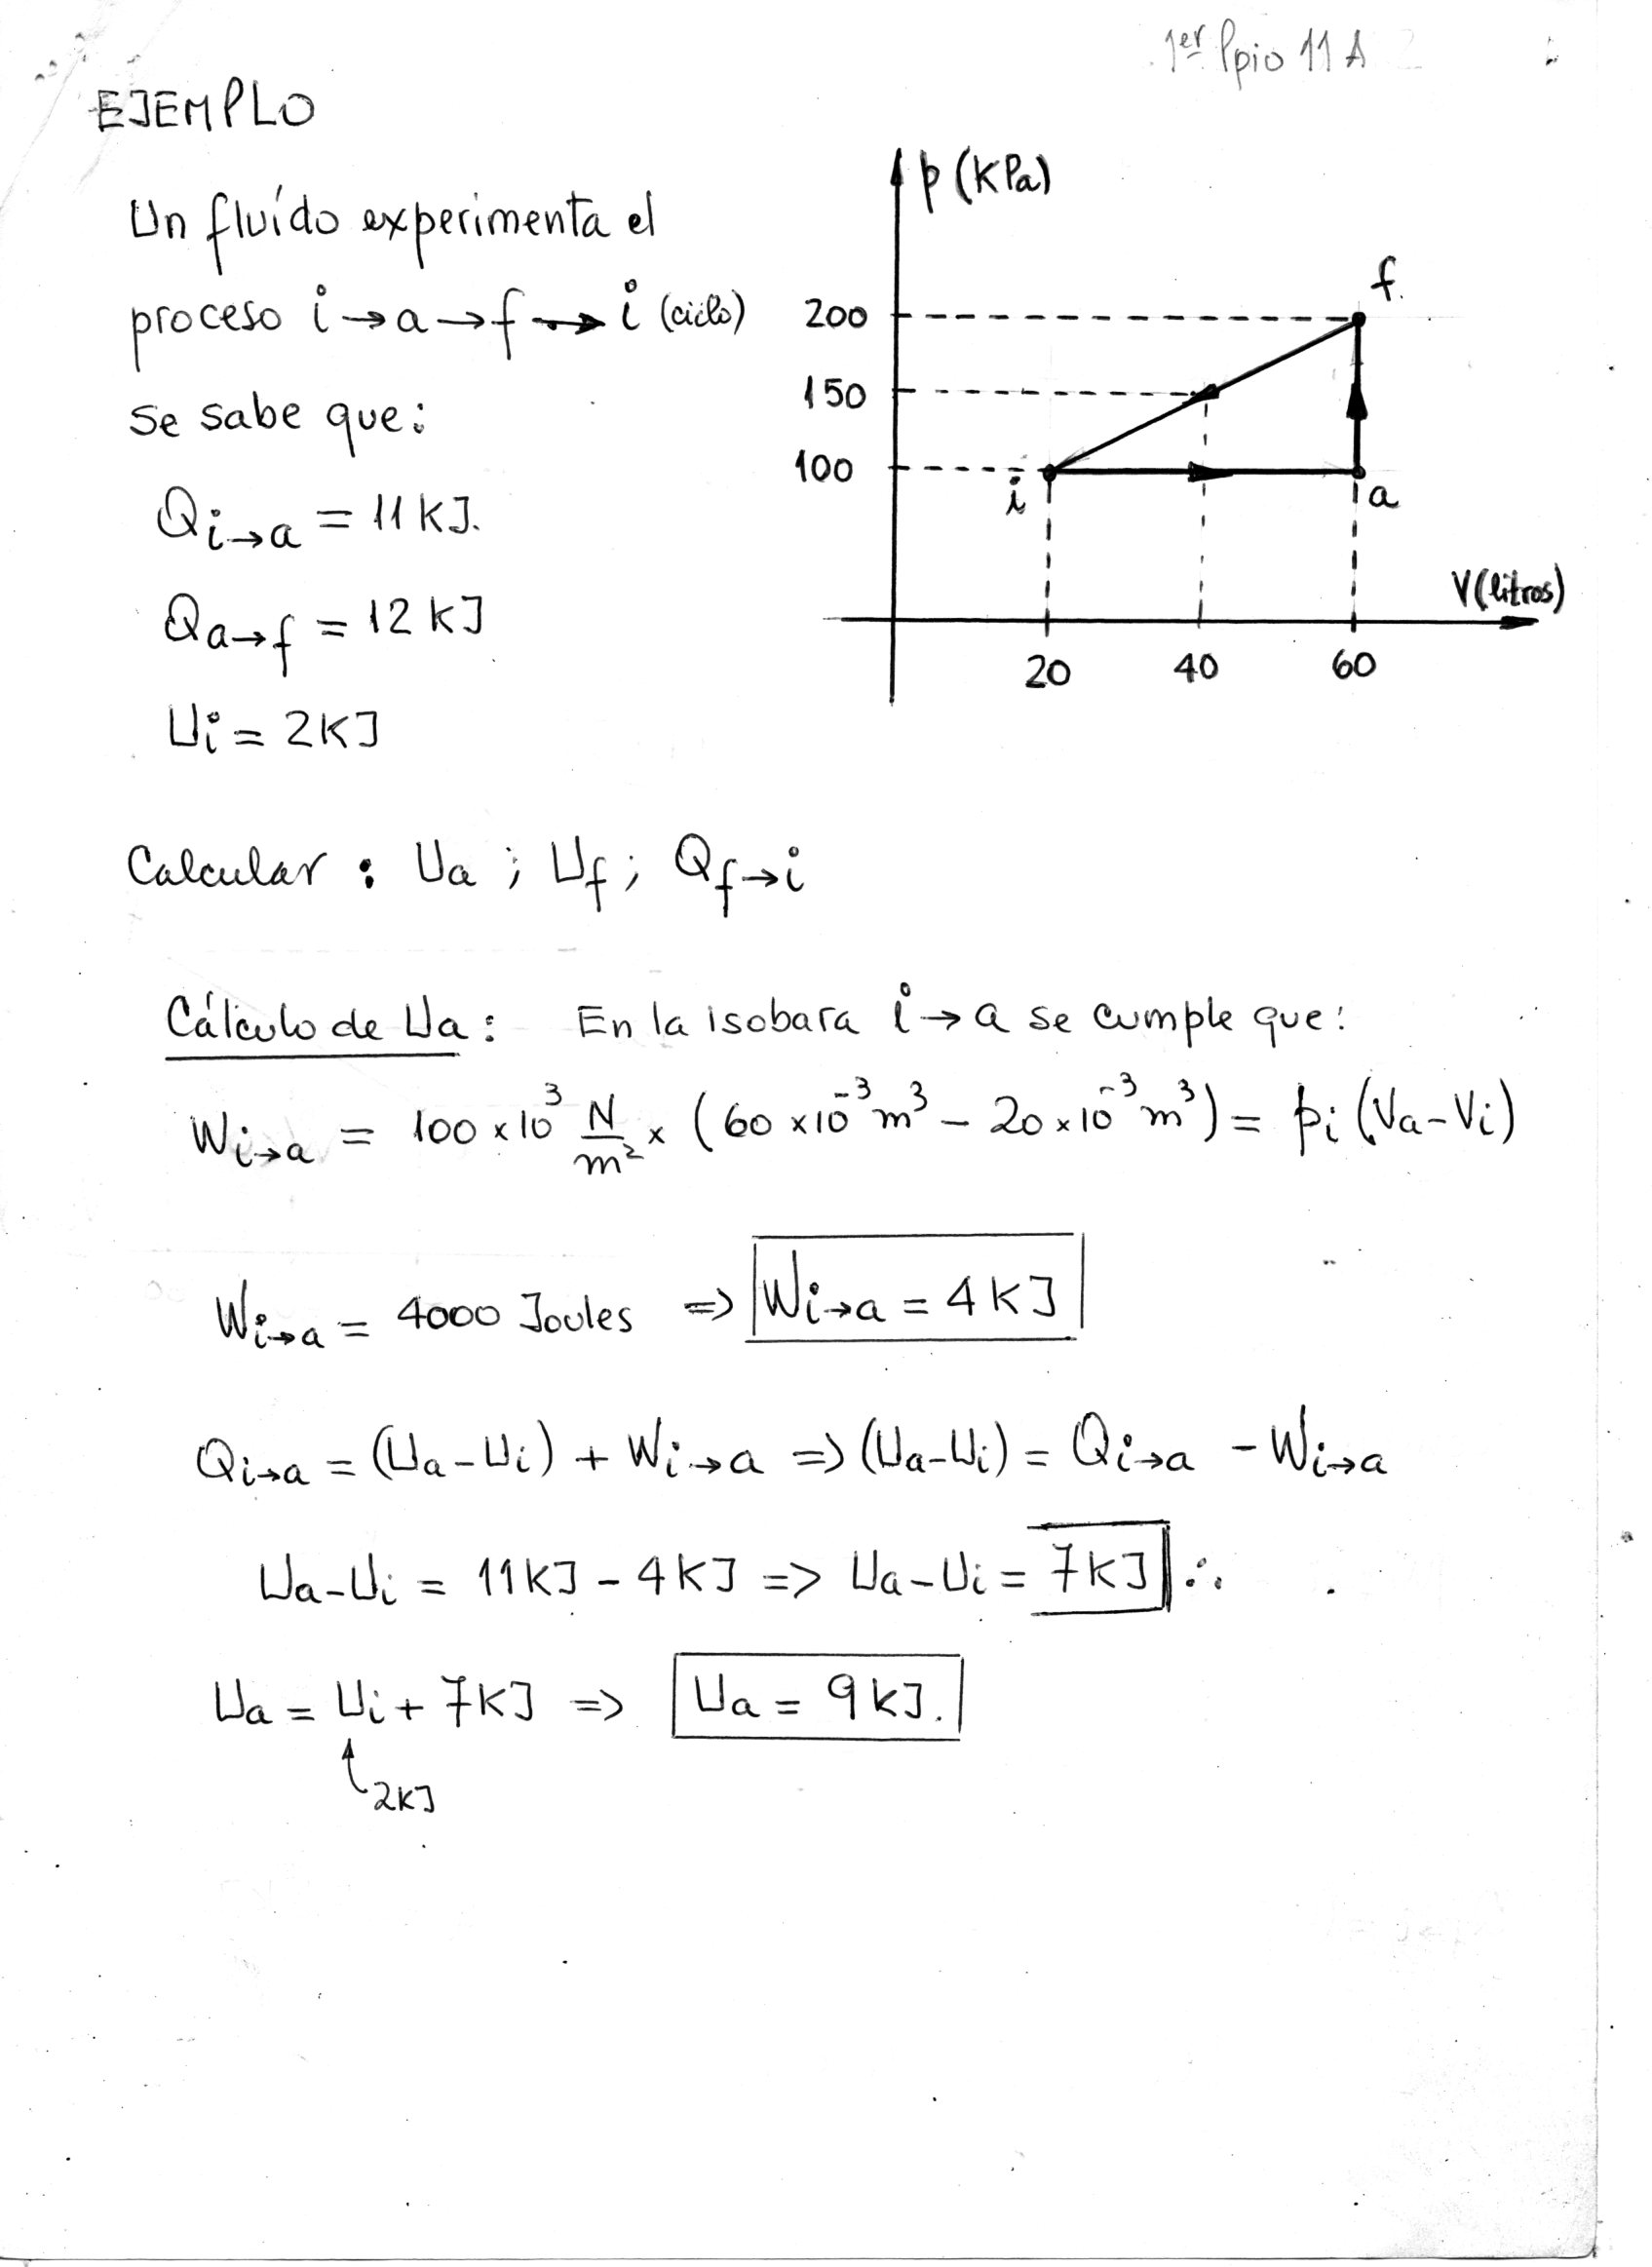 1er Ppio 11A
EJEMPLO
Un fluído experimenta el
proceso i → a → f → i (ciclo)
se sabe que:
Qi→a = 11 KJ.
Qa→f = 12 KJ
Ui = 2KJ
p (KPa)
200
150
100
f.
i
a
V(litros)
20 40 60
Calcular : Ua ; Uf ; Qf→i
Cálculo de Ua : En la isobara i → a se cumple que:
Wi→a = 100 × 10³ N/m² × (60 × 10⁻³ m³ - 20 × 10⁻³ m³) = pi (Va - Vi)
Wi→a = 4000 Joules ⇒ Wi→a = 4 KJ
Qi→a = (Ua - Ui) + Wi→a ⇒ (Ua - Ui) = Qi→a - Wi→a
Ua - Ui = 11KJ - 4KJ ⇒ Ua - Ui = 7KJ ∴
Ua = Ui + 7KJ ⇒ Ua = 9KJ.
2KJ